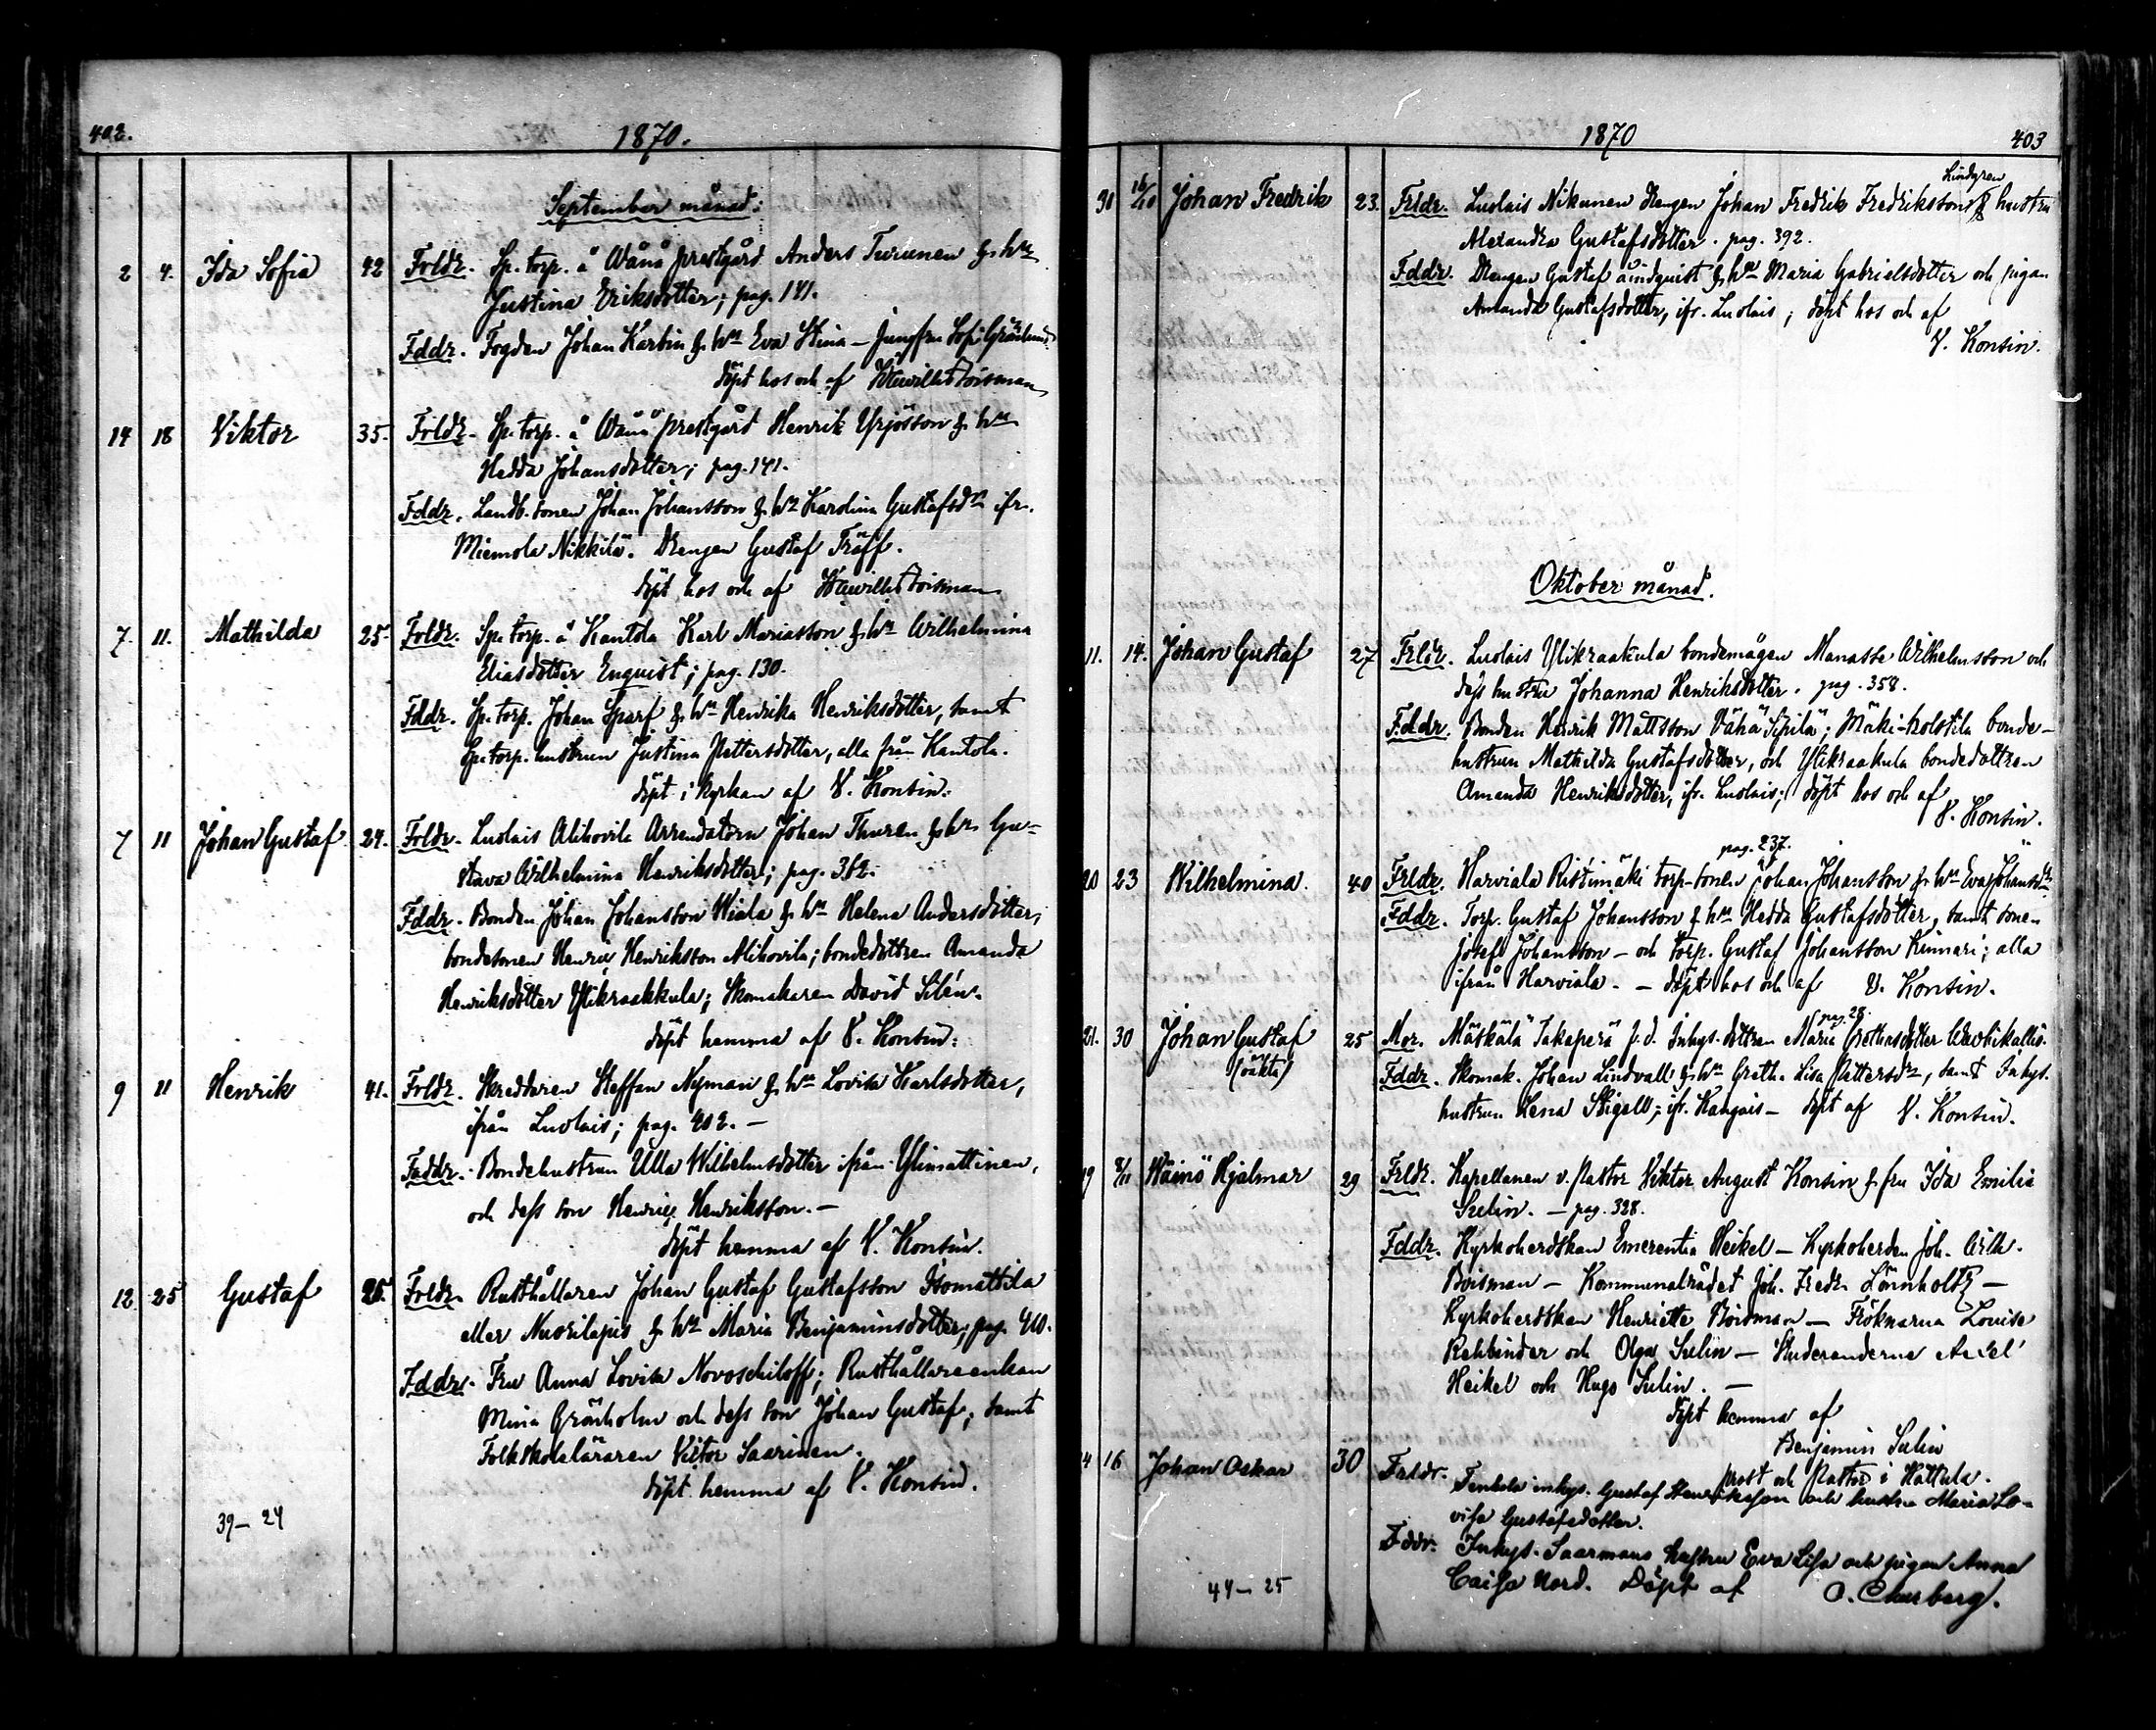 402.
1870.
September månad:
2 4. Ida Sofia 42 Frldr. Sp. torp. å Wånå prestgård Anders Turunen & hu
Justina Eriksdotter; pag. 141.
Fddr. Fogden Johan Karbin & hn Eva Stina – Jungfru Sofi Grönlund
döpt hos och af Boisman
14 18 Viktor 35. Frldr. Sp. torp. å Wånå prestgård Henrik Yrjösson & hn
Hedda Johansdotter; pag. 141.
Fddr. Landb. sonen Johan Johansson & hn Karolina Gustafsdr ifr.
Miemola Nikkilä. Drengen Gustaf Träff.
döpt hos och af Boisman
7. 11. Mathilda 25. Frldr. Sp. torp. å Kantola Karl Mariasson & hn Wilhelmina
Eliasdotter Enquist; pag. 130.
Fddr. Sp. torp. Johan Sparf & hn Henrika Henriksdotter, samt
Sp. torp. hustrun Justina Pettersdotter, alla från Kantola.
döpt i kyrkan af V. Konsin.
7 11 Johan Gustaf 24. Frldr. Luolais Alikovila Arrendatorn Johan Thuren & hn Gu-
stava Wilhelmina Henriksdotter; pag. 362.
Fddr. Bonden Johan Johansson Wiala & hn Helena Andersdotter;
bondesonen Henric Henriksson Alihovila; bondedottren Amanda
Henriksdotter Ylikraakkula; Skomakaren David Silén.
döpt hemma af V. Konsin.
9 11 Henrik 41. Frldr. Skreddaren Steffan Nyman & hn Lovisa Karlsdotter,
ifrån Luolais; pag. 402. –
Faddr. Bondehustrun Ulla Wilhelmsdotter ifrån Ylimattinen,
och dess son Henric Henriksson. –
döpt hemma af V. Konsin.
12 25 Gustaf 26. Frldr. Rusthållaren Johan Gustaf Gustafsson Isomattila
eller Nuorilapis & hn Maria Benjaminsdotter; pag. 410.
Fddr. Fru Anna Lovisa Novoschiloff; Rusthållareenkan
Mina Grönholm och dess son Johan Gustaf; samt
Folkskoleläraren Victor Saarinen.
döpt hemma af V. Konsin.
39 – 24
1870
403
30 16/10 Johan Fredrik 23. Frldr. Luolais Nikunen Drengen Johan Fredrik Fredriksson Lindgren & hustru
Alexandra Gustafsdotter. pag. 392.
Fddr. Drengen Gustaf Lindquist & hn Maria Gabrielsdotter och pigan
Amanda Gustafsdotter, ifr. Luolais; döpt hos och af
V. Konsin.
Oktober månad.
11. 14. Johan Gustaf 27 Frldr. Luolais Ylikraakula bondemågen Manasse Wilhelmsson och
dess hustru Johanna Henriksdotter. pag. 358.
Fddr. Bonden Henrik Mattsson Vähä Sipilä; Mäki-holstila bonde-
hustrun Mathilda Gustafsdotter, och Ylikraakula bondedottren
Amanda Henriksdotter, ifr. Luolais; döpt hos och af
V. Konsin.
pag. 237.
20 23 Wilhelmina. 40 Frldr. Harviala Ristimäki torp-sonen Johan Johansson & hn Eva Johansdr
Fddr. Torp. Gustaf Johansson & hn Hedda Gustafsdotter, samt sonen
Josef Johansson – och torp. Gustaf Johansson Kinnari; alla
ifrån Harviala. – döpt hos och af V. Konsin.
pag. 28.
21. 30 Johan Gustaf 25 Mor. Mäskälä Takaperä f. d. Inhys. dottren Maria Grethasdotter
(oäkta) Fddr. Skomak. Johan Lindvall & hn Greth. Lisa Pettersdr, samt Inhys.
hustrun Lena Stigell; ifr. Kangais – döpt af V. Konsin.
19 8/11 Wäinö Hjalmar 29 Frldr. Kapellanen v. Pastor Viktor August Konsin & fru Ida Emilia
Selin. – pag. 328.
Fddr. Kyrkoherdskan Emerentia Heikel – Kyrkoherden Joh. Wilh.
Boisman – Kommunalrådet Joh. Fredr. Lönnholtz –
Kyrkoherdskan Henriette Boisman – Fröknarna Louise
Rehbinder och Olga Selin – Studerandena Axel
Heikel och Hugo Selin. –
döpt hemma af
Benjamin Selin
prost och Pastor i Hattula.
4 16 Johan Oskar 30 Frldr. Tenhola inhys. Gustaf Henriksson och hustru Maria Lo-
visa Gustafsdotter.
Fddr. Inhys. Saarmans hustru Eva Lisa och pigan Anna
Caisa Nord. Döpt af O. Churberg.
44 – 25